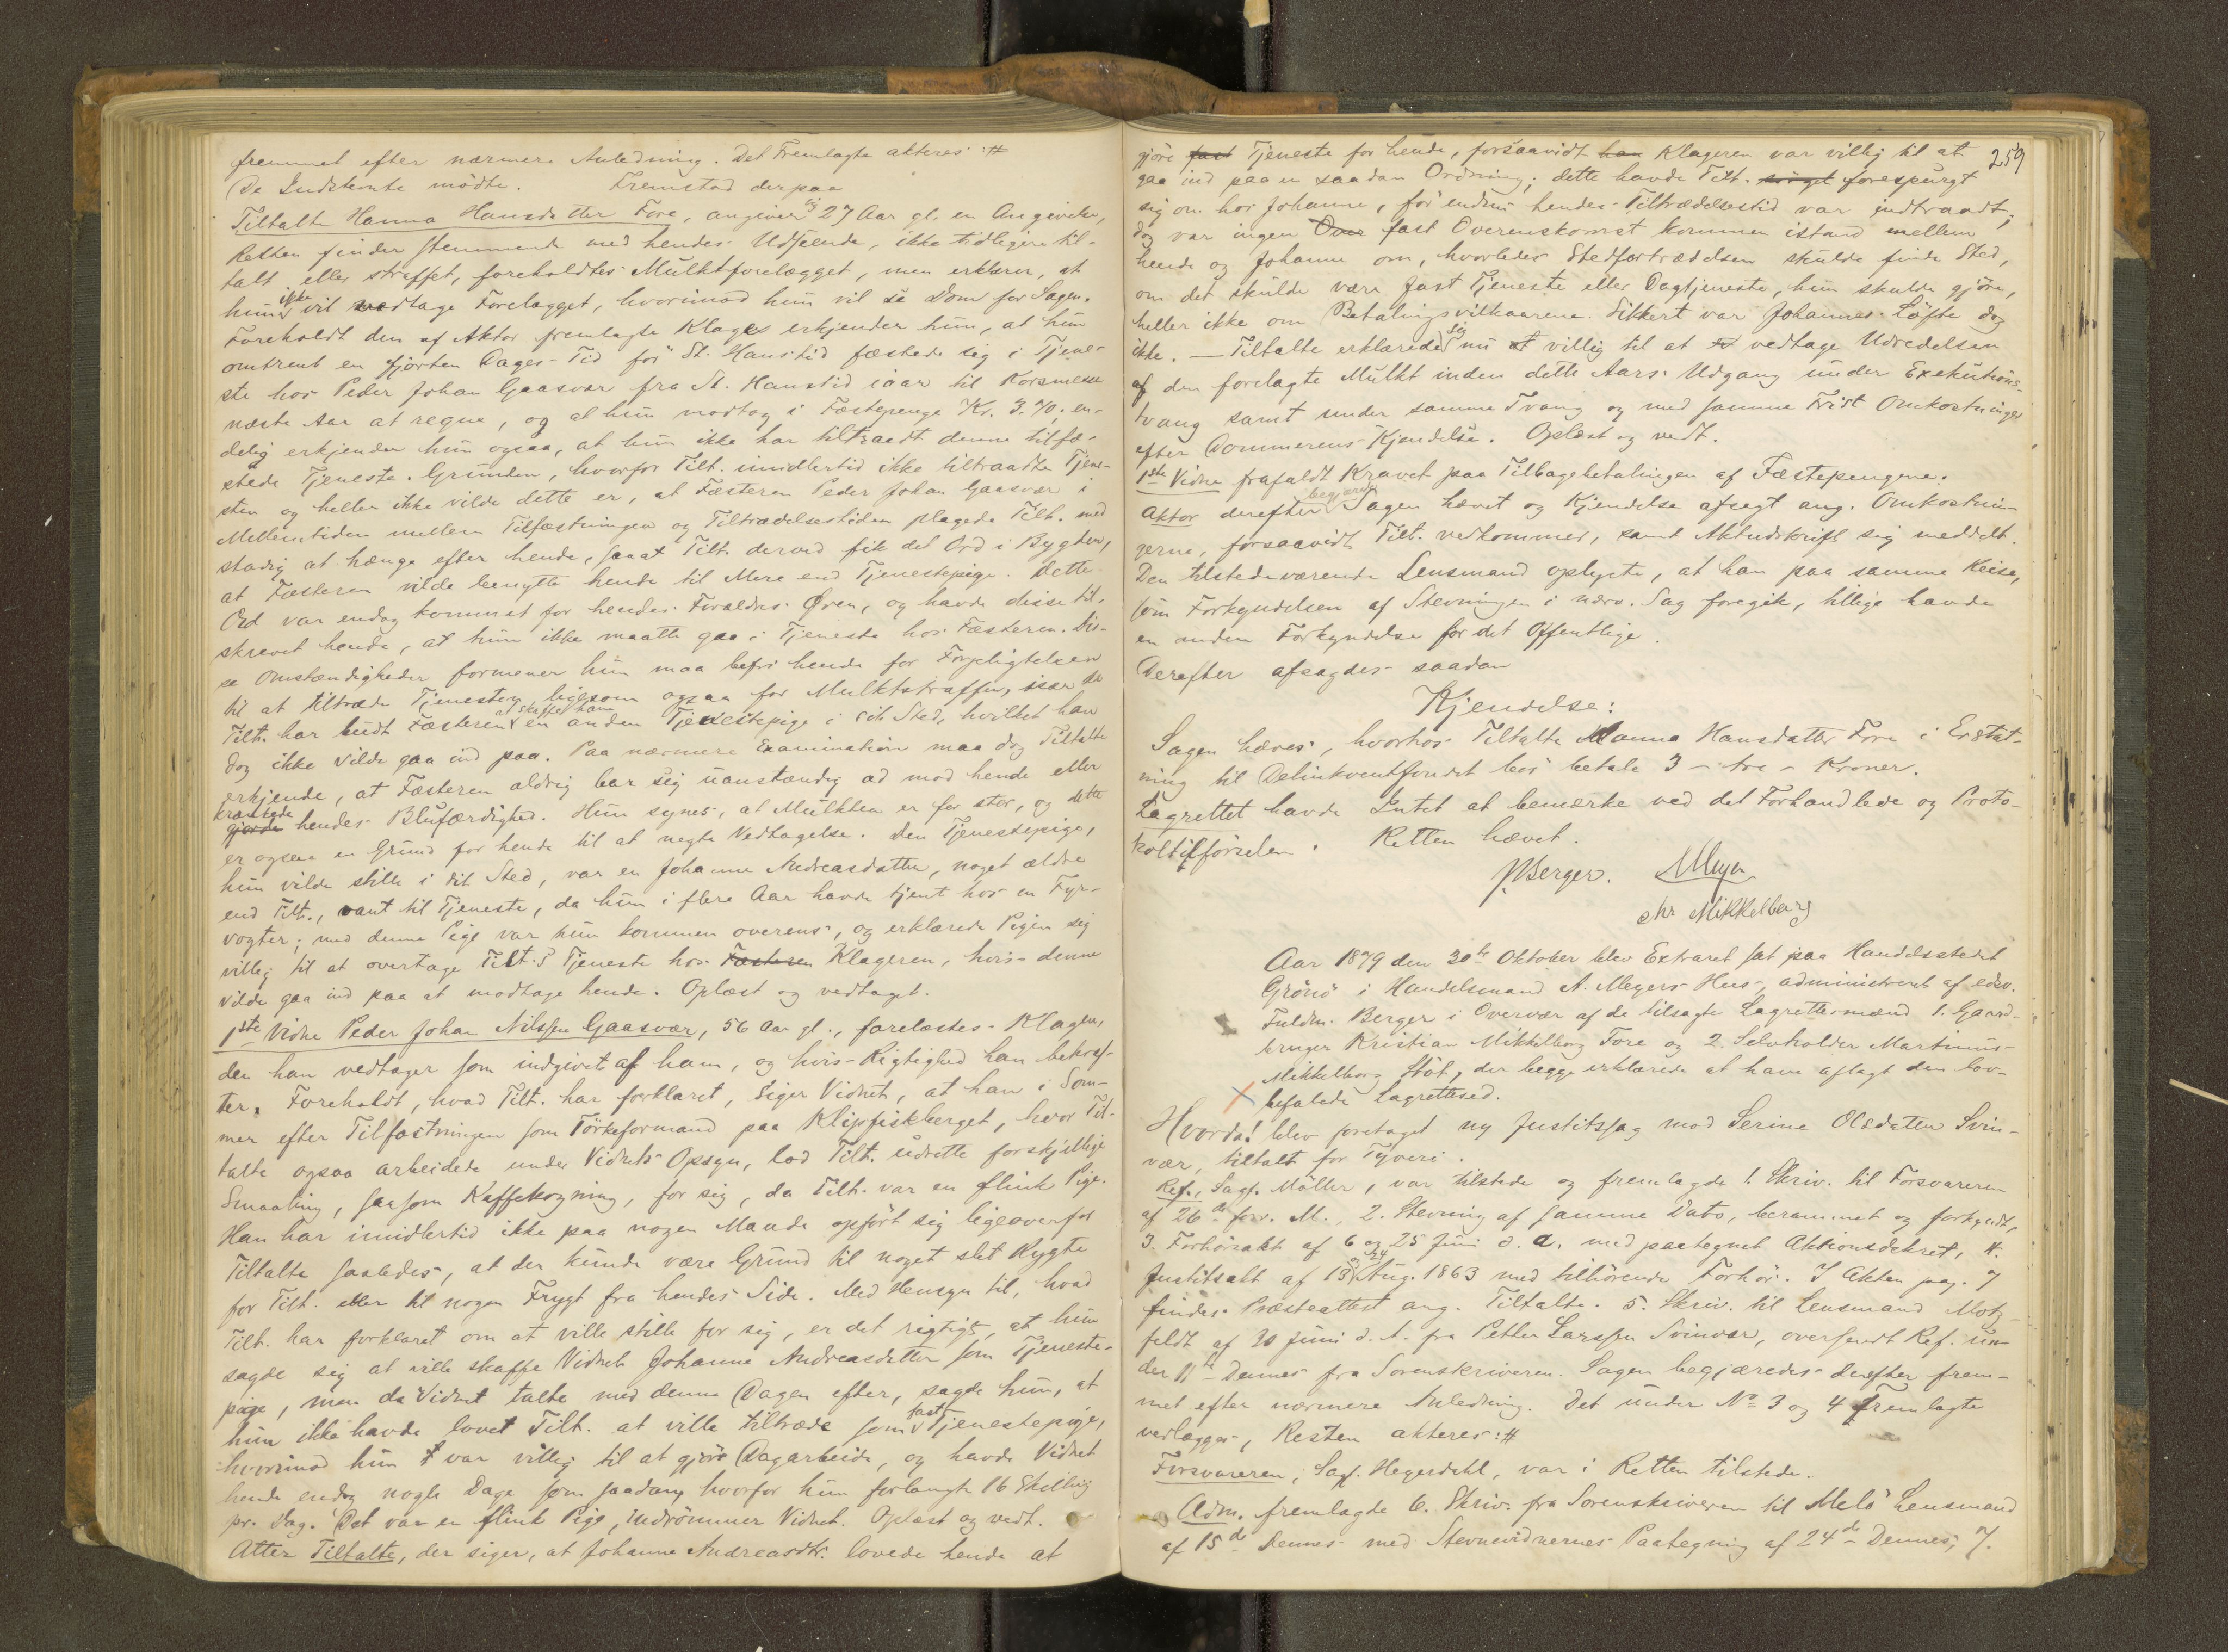 fremmet efter nærmere Anledning. Det Fremlagte akteres :#
De Indstevnte mödte. Fremstod derpaa
Tiltalte Hanna Hansdatter Fore, angiver sig 27 Aar gl. en Angivelse,
Retten finder stemmende med hendes Udseende, ikke tidligere til-
talt eller straffet, foreholdtes Mulktforelægget, men erklærer, at
hun ikke vil vedtage Forelægget, hvorimod hun vil se Dom for Sagen.
Foreholdt den af Aktor fremlagte Klage erkjender hun, at hun
omtrent en fjorten Dages Tid för St. Hanstid fæstede sig i Tjene-
ste hos Peder Johan Gaasvær fra St. Hanstid iaar til Korsmesse
næste Aar at regne, og at hun modtog i Fæstepenge Kr. 3.70; en-
delig erkjender hun ogsaa, at hun ikke har tiltraadt denne tilfæ-
stede Tjeneste. Grunden, hvorfor Tilt. imidlertid ikke tiltraadte Tjene-
sten og heller ikke vilde dette er, at Fæsteren Peder Johan Gaasvær i
Mellemtiden mellem Tilfæstningen og Tiltrædelsestiden plagede Tilt. med
stadig at hænge efter hende, saaat Tilt. derved fik det Ord i Bygden,
at Fæsteren vilde benytte hende til Mere end Tjenestepige. Dette
Ord var endog kommet for hendes Forældres Øren, og havde disse til-
skrevet hende, at hun ikke maatte gaa i Tjeneste hos Fæsteren. Dis-
se Omstændigheder formener hun maa befri hende for Forpligtelsen
til at tiltræde Tjenesten, ligesom ogsaa for Mulktstraffen, især da
Tilt. har budt Fæsteren at skaffe ham en anden Tjenestepige i sit Sted, hvilket han
dog ikke vilde gaa ind paa. Paa nærmere Examination maa dog Tiltalte
erkjende, at Fæsteren aldrig bar sig uanstændig ad mod hende eller
krænkede hendes Blufærdighed. Hun synes, at Mulkten er for stor, og dette
er ogsaa en Grund for hende til at negte Vedtagelse. Den Tjenestepige,
hun vilde stille i sit Sted, var en Johanne Andreasdatter, noget ældre
end Tilt., vant til Tjeneste, da hun i flere Aar havde tjent hos en Fyr-
vogter; med denne Pige var hun kommen overens, og erklærede Pigen sig
villig til at overtage Tilt.s Tjeneste hos Fæsteren Klageren, hvis denne
vilde gaa ind paa at modtage hende. Oplæst og vedtaget.
1ste Vidne Peder Johan Nilssen Gaasvær, 56 Aar gl., forelæstes Klagen,
den han vedtager som indgivet af ham, og hvis Rigtighed han bekræf-
ter. Foreholdt, hvad Tilt. har forklaret, siger Vidnet, at han i Som-
mer efter Tilfæstningen som Törkeformand paa Klipfiskberget, hvor Til-
talte ogsaa arbeidede under Vidnets Opsyn, lod Tilt. udrette forskjellige
Smaating, saasom Kaffekogning, for sig, da Tilt. var en flink Pige.
Han har imidlertid ikke paa nogen Maade opfört sig ligeoverfor
Tiltalte saaledes, at der kunde være Grund til noget slet Rygte
for Tilt. eller til nogen Frygt fra hendes Side. Med Hensyn til, hvad
Tilt. har forklaret om at ville stille for sig, er det rigtigt, at hun
sagde sig at ville skaffe Vidnet Johanne Andreasdatter som Tjeneste-
pige, men da Vidnet talte med denne Dagen efter, sagde hun, at
hun ikke havde lovet Tilt. at ville tiltræde som fast Tjenestepige,
hvorimod hun var villig til at gjöre Dagarbeide, og havde Vidnet
hende endog nogle Dage som saadan, hvorfor hun forlangte 16 Skilling
pr. Dag. Det var en flink Pige, indrömmer Vidnet. Oplæst og vedt.
Atter Tiltalte, der siger, at Johanne Andreasdtr. lovede hende at
259
gjöre fast Tjeneste for hende, forsaavidt han Klageren var villig til at
gaa ind paa en saadan Ordning; dette havde Tilt. sörget forespurgt
sig om hos Johanne, för endnu hendes Tiltrædelsestid var indtraadt;
dog var ingen Over fast Overenskomst kommen istand mellem
hende og Johanne om, hvorledes Stedfortrædelsen skulde finde Sted,
om det skulde være fast Tjeneste eller Dagtjeneste, hun skulde gjöre,
heller ikke om Betalingsvilkaarene. Sikkert var Johannes Löfte dog
ikke. — Tiltalte erklærede sig nu villig til at vedtage Udredelsen
af den forelagte Mulkt inden dette Aars Udgang under Exekutions-
tvang samt under samme Tvang og med samme Frist Omkostninger
efter Dommerens Kjendelse. Oplæst og vedt.
1ste Vidne frafaldt Kravet paa Tilbagebetalingen af Fæstepengene.
Aktor derefter begjærede Sagen hævet og Kjendelse afsagt ang. Omkostnin-
gerne, forsaavidt Tilt. vedkommer, samt Aktudskrift sig meddelt.
Den tilstedeværende Lensmand oplyste, at han paa samme Reise,
som Forkyndelsen af Stevningen i nærv. Sag foregik, tillige havde
en anden Forkyndelse for det Offentlige.
Derefter afsagdes saadan
Kjendelse:
Sagen hæves, hvorhos Tiltalte Hanna Hansdatter Fore i Erstat-
ning til Delinkventfondet bör betale 3 - tre - Kroner.
Lagrettet havde Intet at bemærke ved det Forhandlede og Proto-
koltilförselen. Retten hævet.
P Berger. A Meyer
Chr Mikkelborg
Aar 1879 den 30te Oktober blev Extraret sat paa Handelsstedet
Grönö i Handelsmand A. Meyers Hus, administreret af edsv.
Fuldm. Berger i Overvær af de tilsagte Lagrettesmænd 1. Gaard-
bruger Kristian Mikkelborg Fore og 2. Selveholder Martinus
Mikkelborg Stöt, der begge erklærede at have aflagt den lov-
befalede Lagrettesed.
Hvorda! blev foretaget ny Justitssag mod Serine Olsdatter Svin-
vær, tiltalt for Tyveri.
Ref., Sagf. Möller, var tilstede og fremlagde 1. Skriv. til Forsvareren
af 26de forr. M., 2. Stevning af samme Dato, berammet og forkyndt,
3. Forhörsakt af 6 og 25 Juni d. A. med paategnet Aktionsdekret, 4.
Justitsakt af 13 og 24 Aug. 1863 med tilhörende Forhör. I Akten pag. 7
findes Præsteattest ang. Tiltalte. 5. Skriv. til Lensmand Motz-
feldt af 30 Juni d. A. fra Petter Larssen Svinvær, oversendt Ref. un-
der 11te Dennes fra Sorenskriveren. Sagen begjæredes derefter frem-
met efter nærmere Anledning. Det under No 3 og 4 Fremlagte
vedlægges, Resten akteres :#
Forsvareren, Sagf. Hegerdahl, var i Retten tilstede.
Adm. fremlagde 6. Skriv. fra Sorenskriveren til Melö Lensmand
af 15de Dennes med Stevnevidnernes Paategning af 24de Dennes, 7.